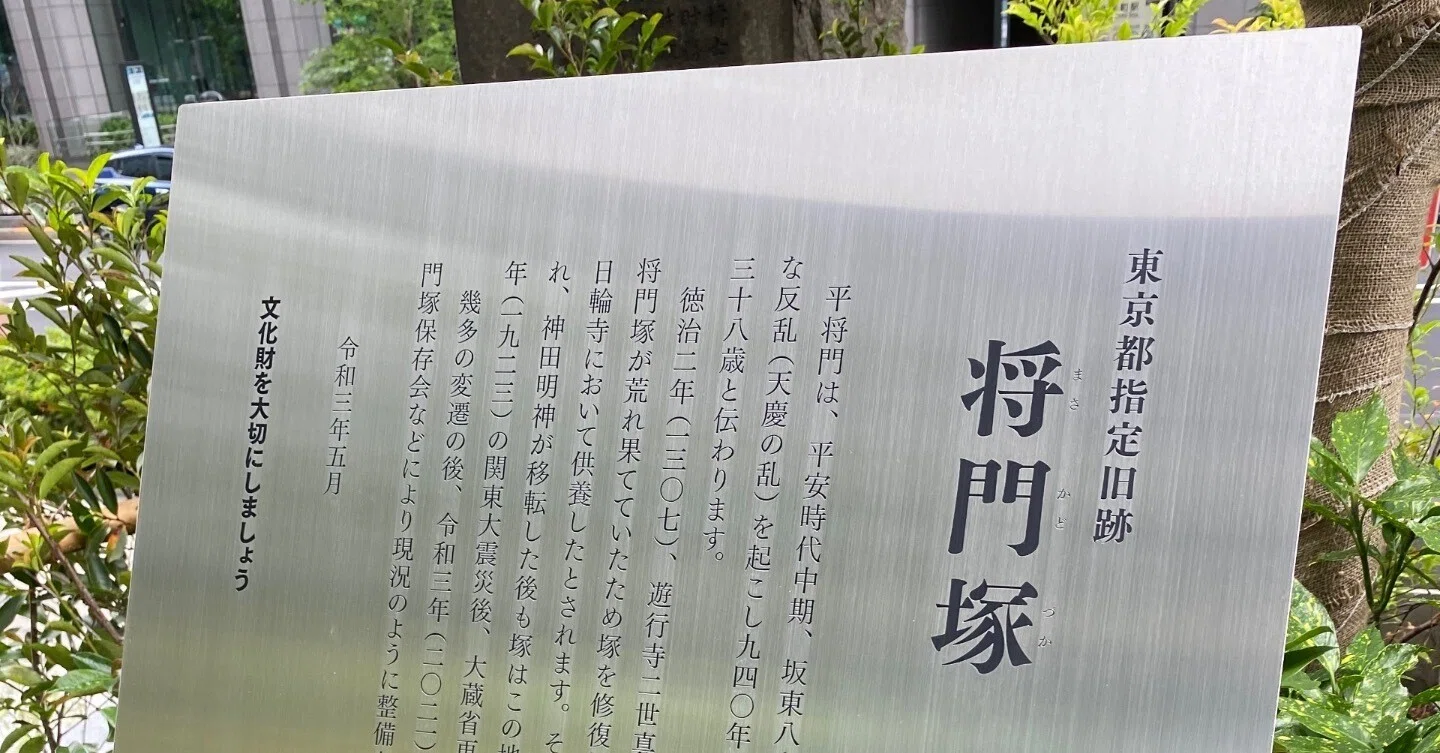 東京都指定旧跡
将門塚
まさ かど づか
平将門は、平安時代中期、坂東八
な反乱（天慶の乱）を起こし九四〇年
三十八歳と伝わります。
徳治二年（一三〇七）、遊行寺二世真
将門塚が荒れ果てていたため塚を修復
日輪寺において供養したとされます。そ
れ、神田明神が移転した後も塚はこの地
年（一九二三）の関東大震災後、大蔵省再
幾多の変遷の後、令和三年（二〇二一）
門塚保存会などにより現況のように整備
令和三年五月
文化財を大切にしましょう